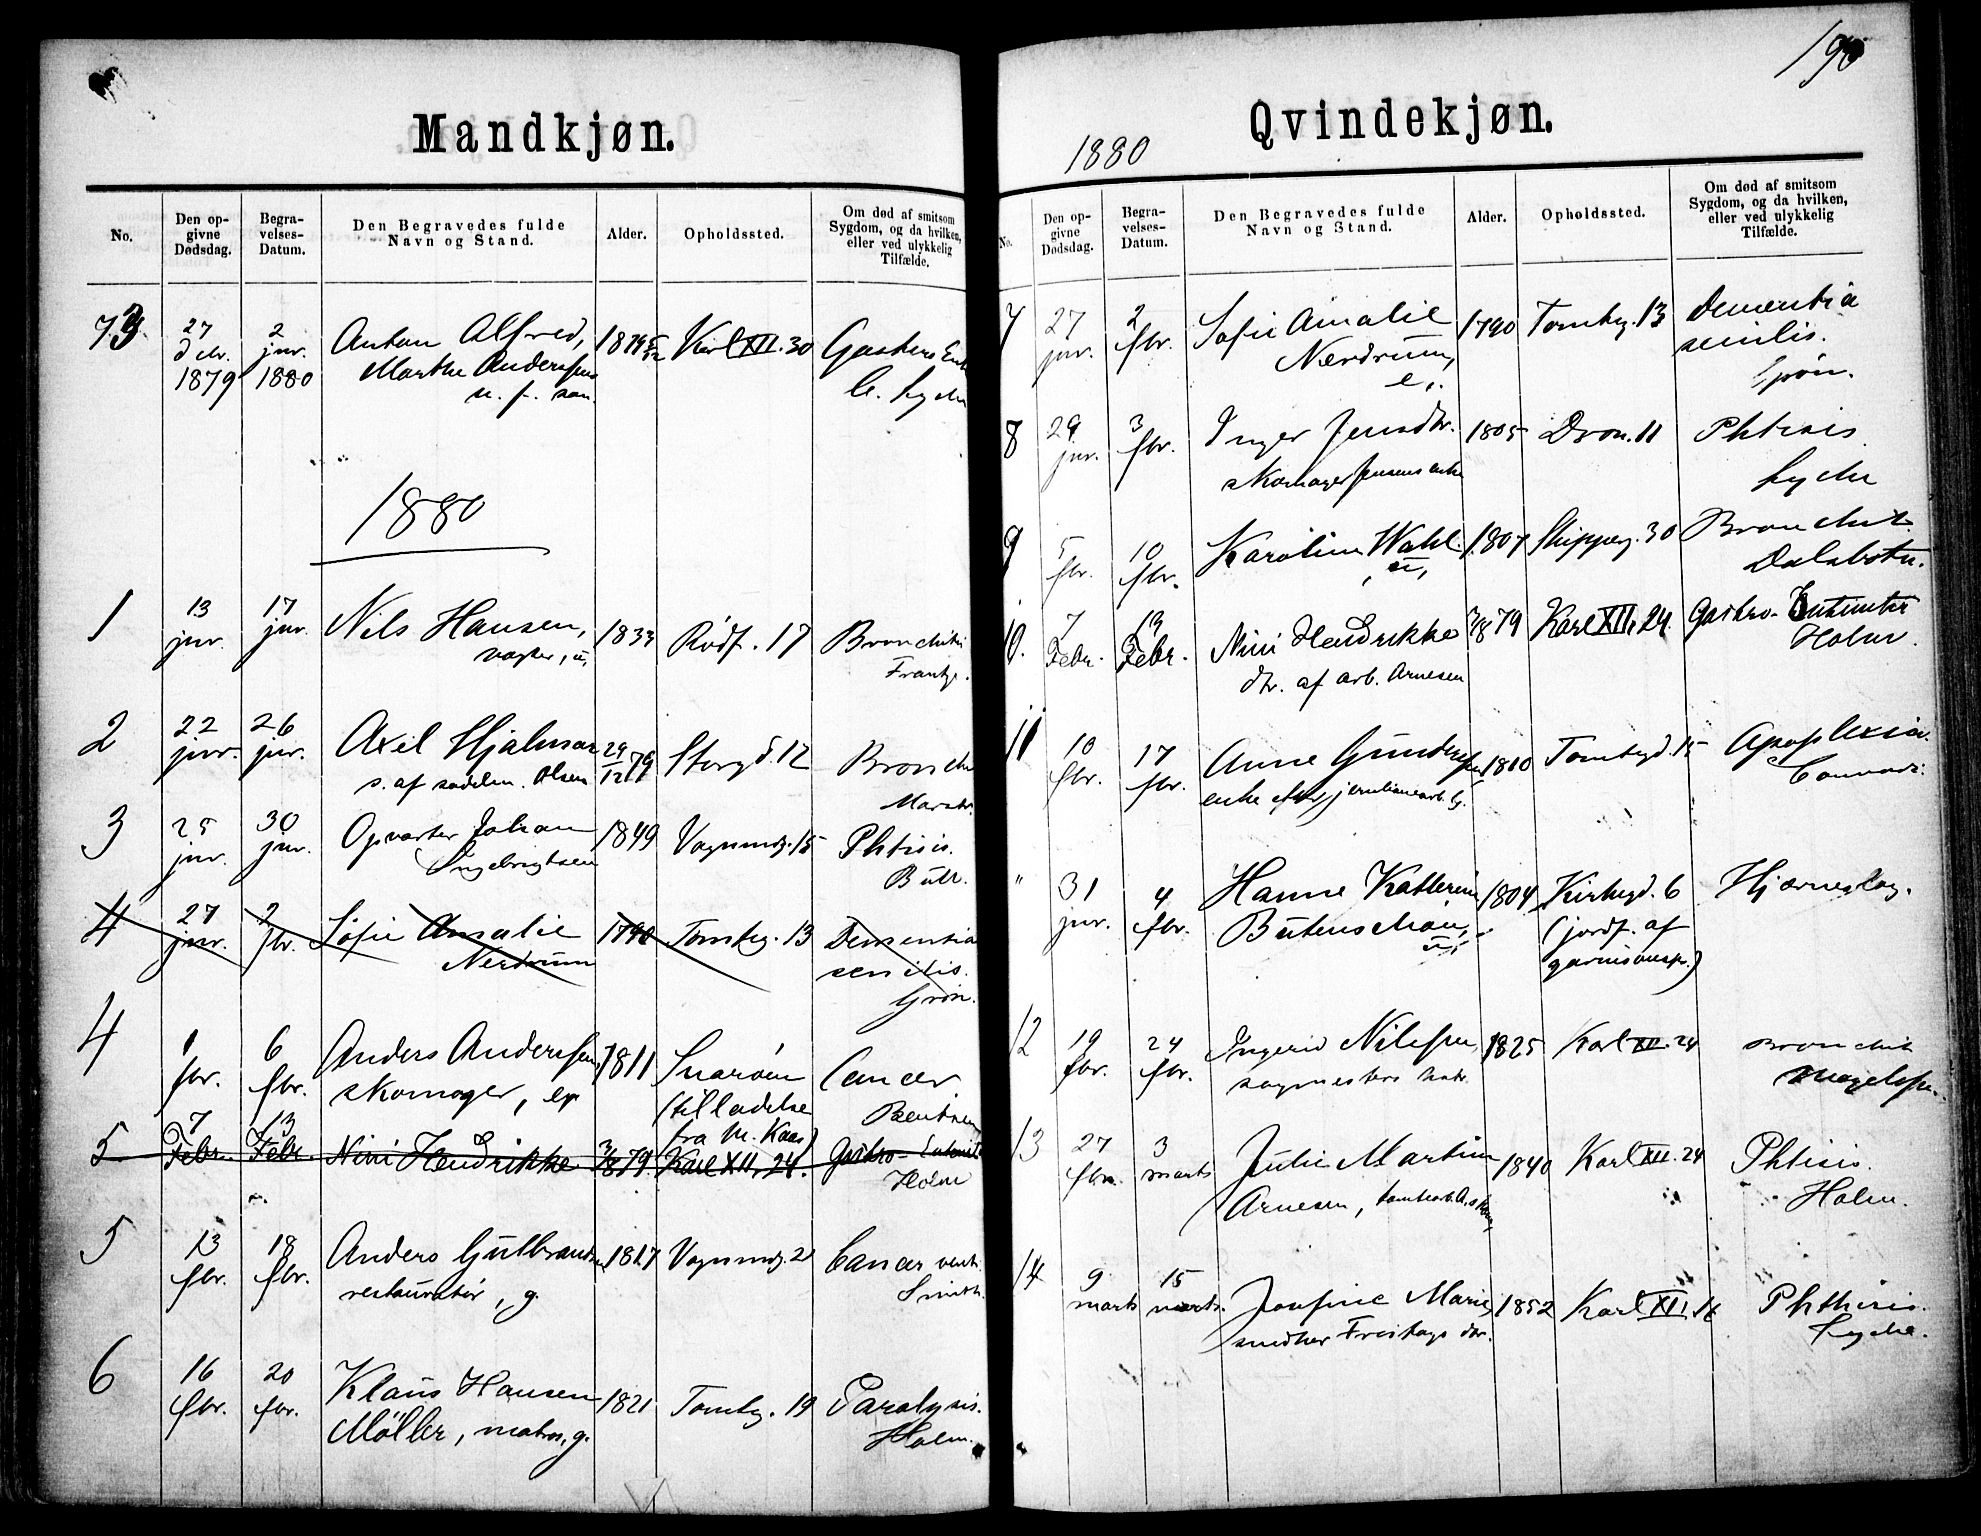 190
Mandkjøn.
No.
Den op-
givne
Dødsdag.
Begra-
velses-
Datum.
Den Begravedes fulde
Navn og Stand.
Alder.
Opholdssted.
Om død af smitsom
Sygdom, og da hvilken,
eller ved ulykkelig
Tilfælde.
73.
27
dcbr.
1879
2
jnr.
1880
Anton Alfred,
Marthe Andersens
u. f. søn.
1879
Karl XII. 30
Lyche
1880
1
13
jnr.
17
jnr.
Nils Hansen,
vogter, u,
1833
Rödf. 17
Bronchitis
Frantz.
2
22
jnr.
26
jnr.
Axel Hjalmar
s. af sadelm. Olsen
29/12 79
Storgd. 12
Bronch
3
25
jnr.
30
jnr.
Opvarter Johan
Ingebrigtsen
1849
Vognmg. 15
Phtisis.
Bull.
4
27
jnr.
2
fbr.
Sofie Amalie
Nerdrum
1790
Tomteg. 13
Dementia
senilis.
Grön.
4
1
fbr.
6
fbr.
Anders Andersen,
skomager, e
1811
Snarøen
(tilladelse
fra M. Kaas)
Cancer
Bentzen
5
7
Febr.
13
Febr.
Nini Hendrikke
3/8 79
Karl XII, 24.
Gastro-
Holm
5
13
fbr.
18
fbr.
Anders Gulbrandsen
restauratör, g.
1817
Vognmg. 21
Cancer vent.
Smith.
6
16
fbr.
20
fbr.
Klaus Hansen
Möller, matros, g.
1821
Tomteg. 19
Paralysis.
Holm.
Qvindekjøn.
1880
No.
Den op-
givne
Dødsdag.
Begra-
velses-
Datum.
Den Begravedes fulde
Navn og Stand.
Alder.
Opholdssted.
Om død af smitsom
Sygdom, og da hvilken,
eller ved ulykkelig
Tilfælde.
7
27
jnr.
2
fbr.
Sofie Amalie
Nerdrum,
e,.
1790
Tomteg. 13
Dementia
senilis.
Grön.
8
29
jnr.
3
fbr.
Inger Jensdtr.
skomager Jensens enke
1805
Dron. 11
Phtisis
Lyche
9
5
fbr.
10
fbr.
Karoline Wahl.
, u,
1807
Skipperg. 30
Bronchit.
10.
7
Febr.
13
Febr.
Nini Hendrikke
dtr. af arb. Arnesen
3/8 79
Karl XII, 24
Gastro-
Holm.
11
10
fbr.
17
fbr.
Anne Gundersen
enke efter jernbanearb. G.
1810
Tomtegd. 15
Apoplexia.
Conradi.
"
31
jnr.
4
fbr.
Hanne Katterine
Butenschön,
u,
1804
Kirkegd. 6
(jordf. af
garnisonspr.)
Hjerneslag.
12
19
fbr.
24
fbr.
Ingerid Nilsen
1825
Karl XII. 24
Bronchit
Magelsen.
13
27
fbr.
3
marts
Julie Martine
Arnesen, tomtearb. A.s kone,
1840
Karl XII. 24
Phtisis.
Holm.
14
9
marts
15
marts.
Josefine Marie,
snedker Freitags dtr.
1852
Karl XII. 16
Phthisis.
Lyche.